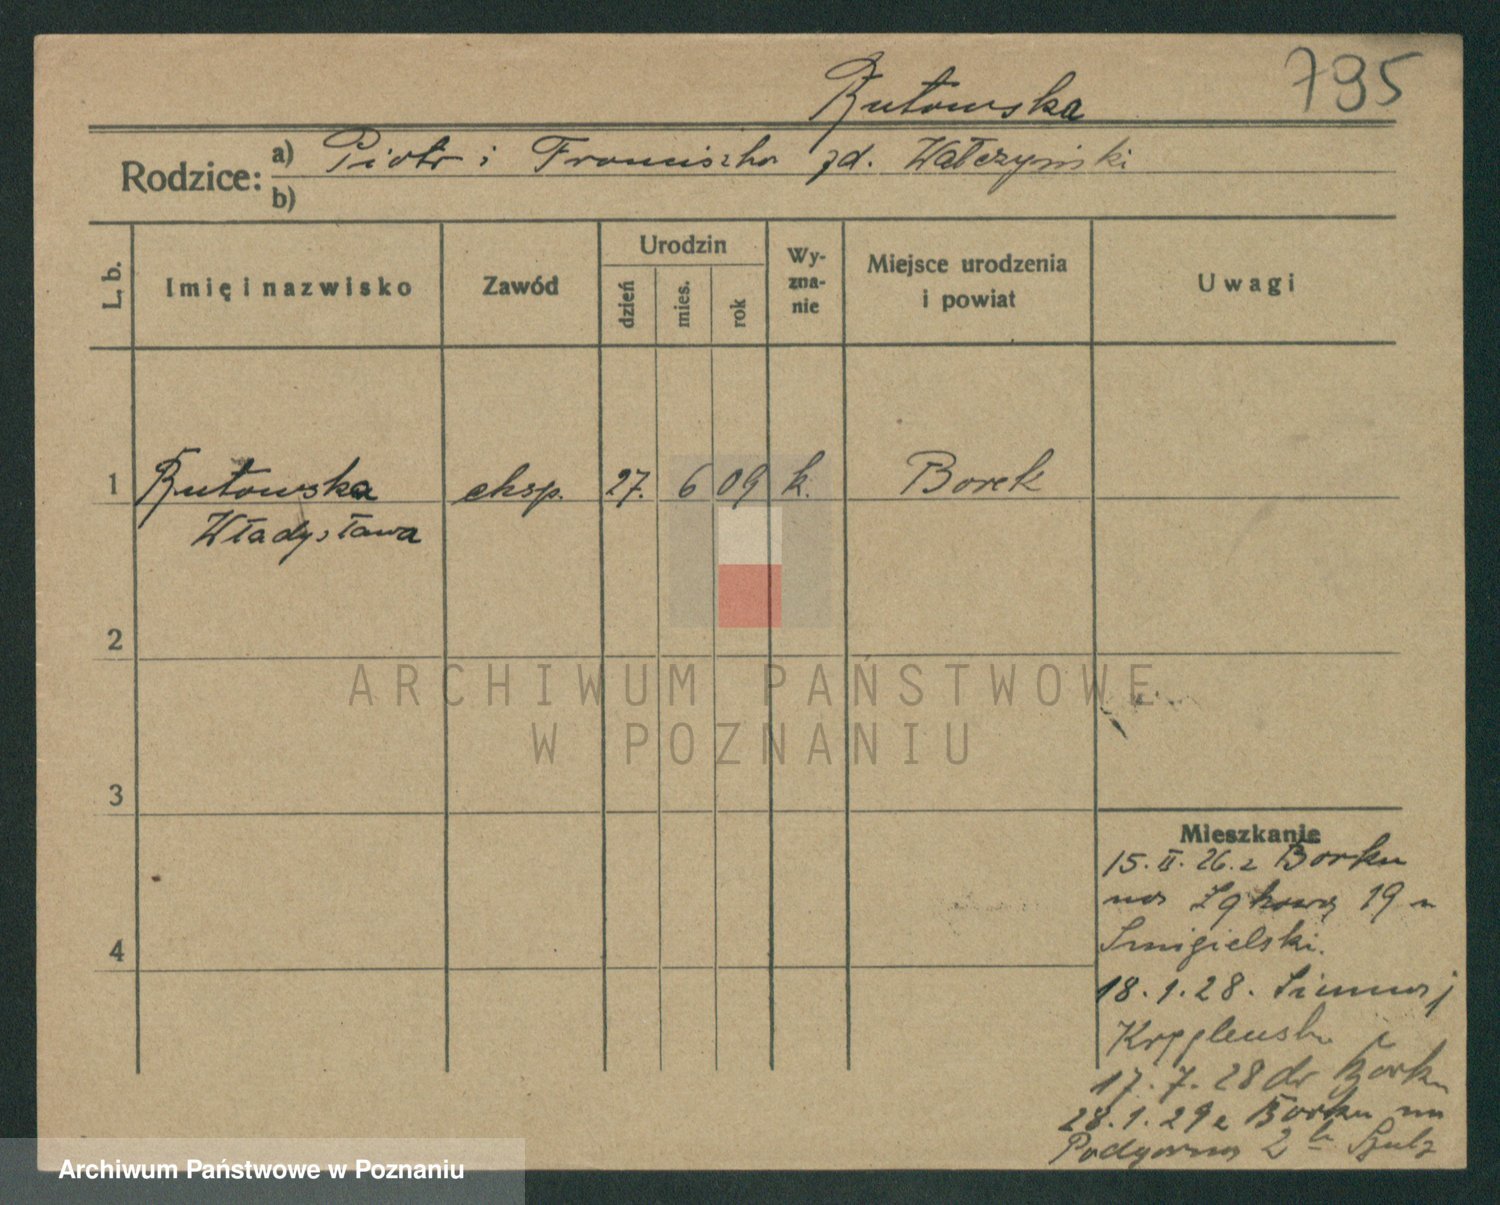 795
Rutowska
Rodzice: a) Piotr i Franciszka zd. Wałczyński
b)
L. b.
Imię i nazwisko
Zawód
Urodzin
dzień
mies.
rok
Wy-
zna-
nie
Miejsce urodzenia
i powiat
Uwagi
1 Rutowska eksp. 27. 6 09 k. Borek
Władysława
2
ARCHIWUM PAŃSTWOWE
W POZNANIU
3
Mieszkanie
15. II. 26. z Borku
na Łąkową 19 u
Śmigielski.
4
18. 1. 28.
17. 7. 28 do Borku
28. 1. 29 z Borku na
Podgórna 2 b Szulz
Archiwum Państwowe w Poznaniu